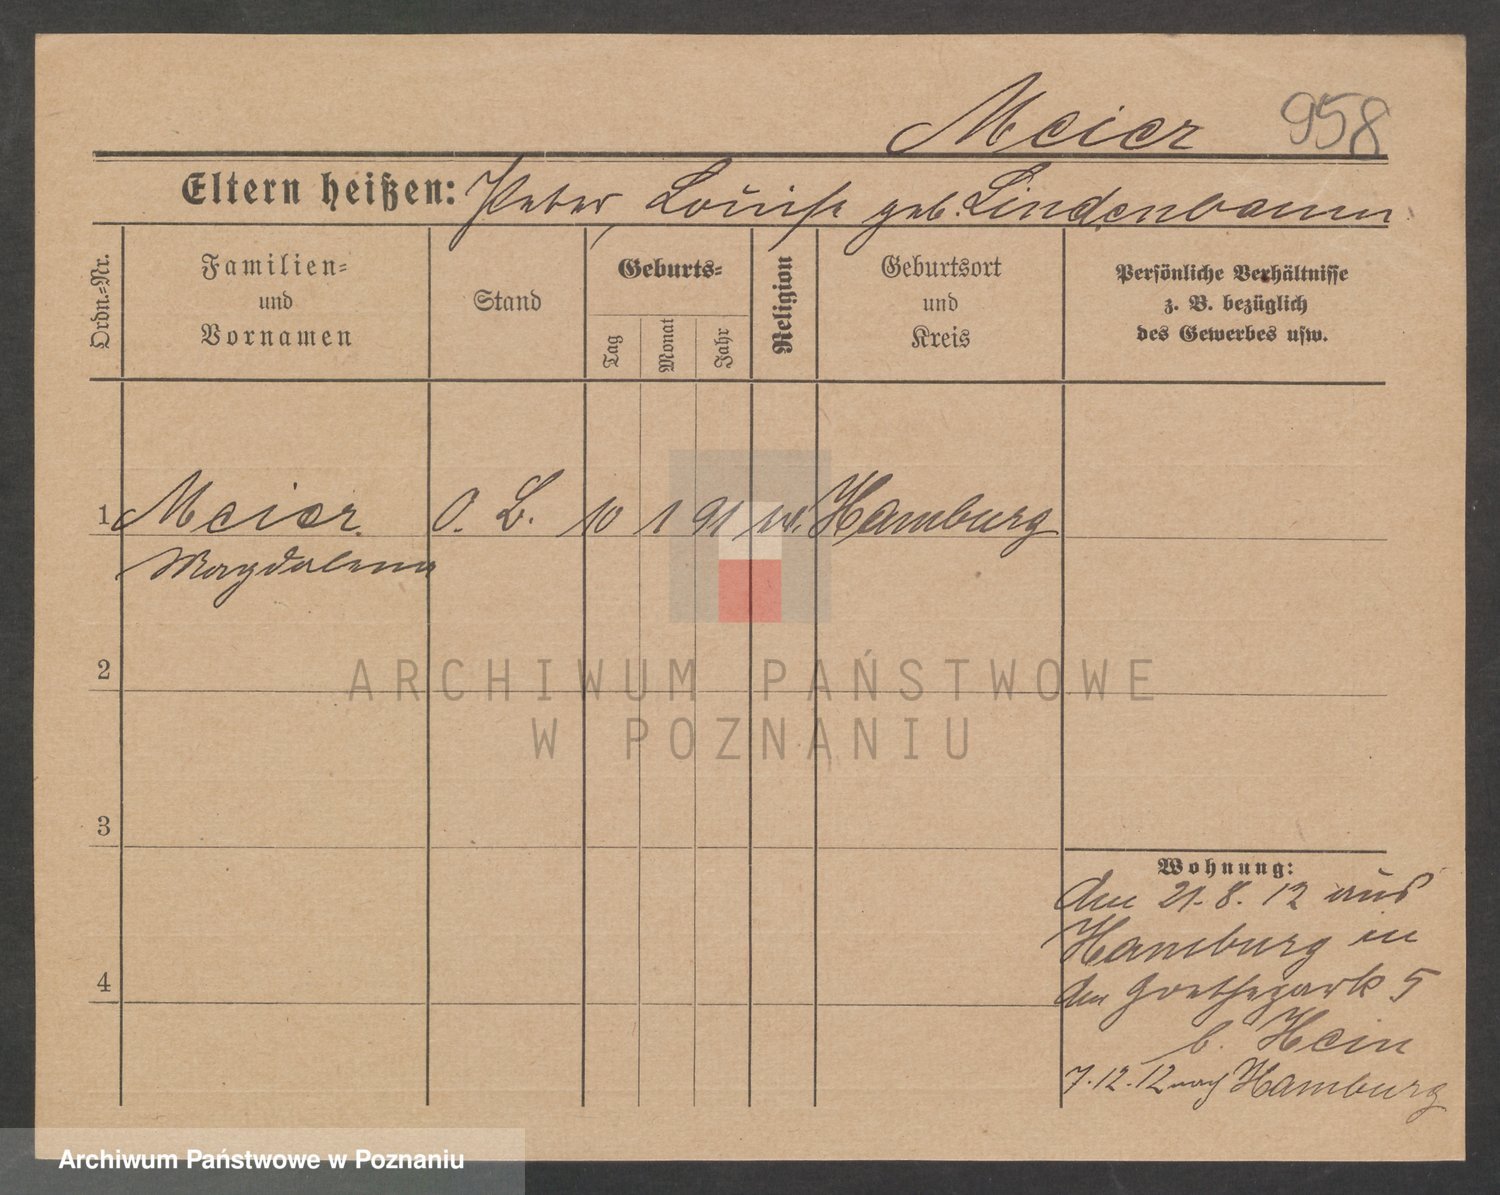 Meier 958
Eltern heißen: Peter, Louise geb. Lindenbaum
Ordn.-Nr.
Familien-
und
Vornamen
Stand
Geburts-
Tag
Monat
Jahr
Religion
Geburtsort
und
Kreis
Persönliche Verhältnisse
z. B. bezüglich
des Gewerbes usw.
1 Meier O. L. 10 1 91 Hamburg
Magdalena
2
3
4
Wohnung:
den 21. 8. 12 aus
Hamburg in
den Goethepark 5
b. Hein
7. 12. 12 nach Hamburg
ARCHIWUM PAŃSTWOWE
W POZNANIU
Archiwum Państwowe w Poznaniu